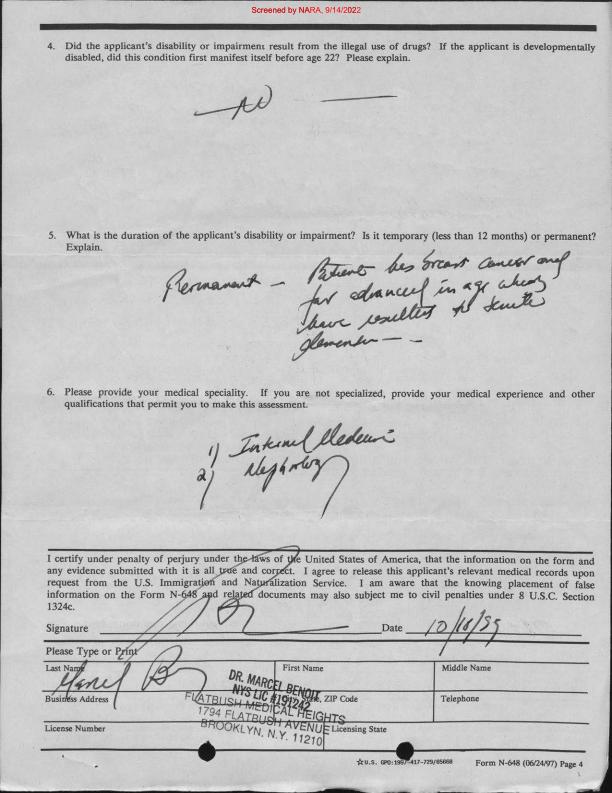 Screened by NARA, 9/14/2022
4. Did the applicant's disability or impairment result from the illegal use of drugs? If the applicant is developmentally
disabled, did this condition first manifest itself before age 22? Please explain.
— NO —
5. What is the duration of the applicant's disability or impairment? Is it temporary (less than 12 months) or permanent?
Explain.
Permanent — Patient has breast cancer and
far advanced in age
have resulted to senile
dementia — -
6. Please provide your medical speciality. If you are not specialized, provide your medical experience and other
qualifications that permit you to make this assessment.
1) Internal Medicine
2) Nephrology
I certify under penalty of perjury under the laws of the United States of America, that the information on the form and
any evidence submitted with it is all true and correct. I agree to release this applicant's relevant medical records upon
request from the U.S. Immigration and Naturalization Service. I am aware that the knowing placement of false
information on the Form N-648 and related documents may also subject me to civil penalties under 8 U.S.C. Section
1324c.
Signature Date 10/18/99
Please Type or Print
Last Name First Name Middle Name
Marcel
DR. MARCEL BENOIT
NYS LIC #191242
Business Address ZIP Code Telephone
FLATBUSH MEDICAL HEIGHTS
1794 FLATBUSH AVENUE
BROOKLYN, N.Y. 11210
License Number Licensing State
☆U.S. GPO:1997-417-729/65668 Form N-648 (06/24/97) Page 4